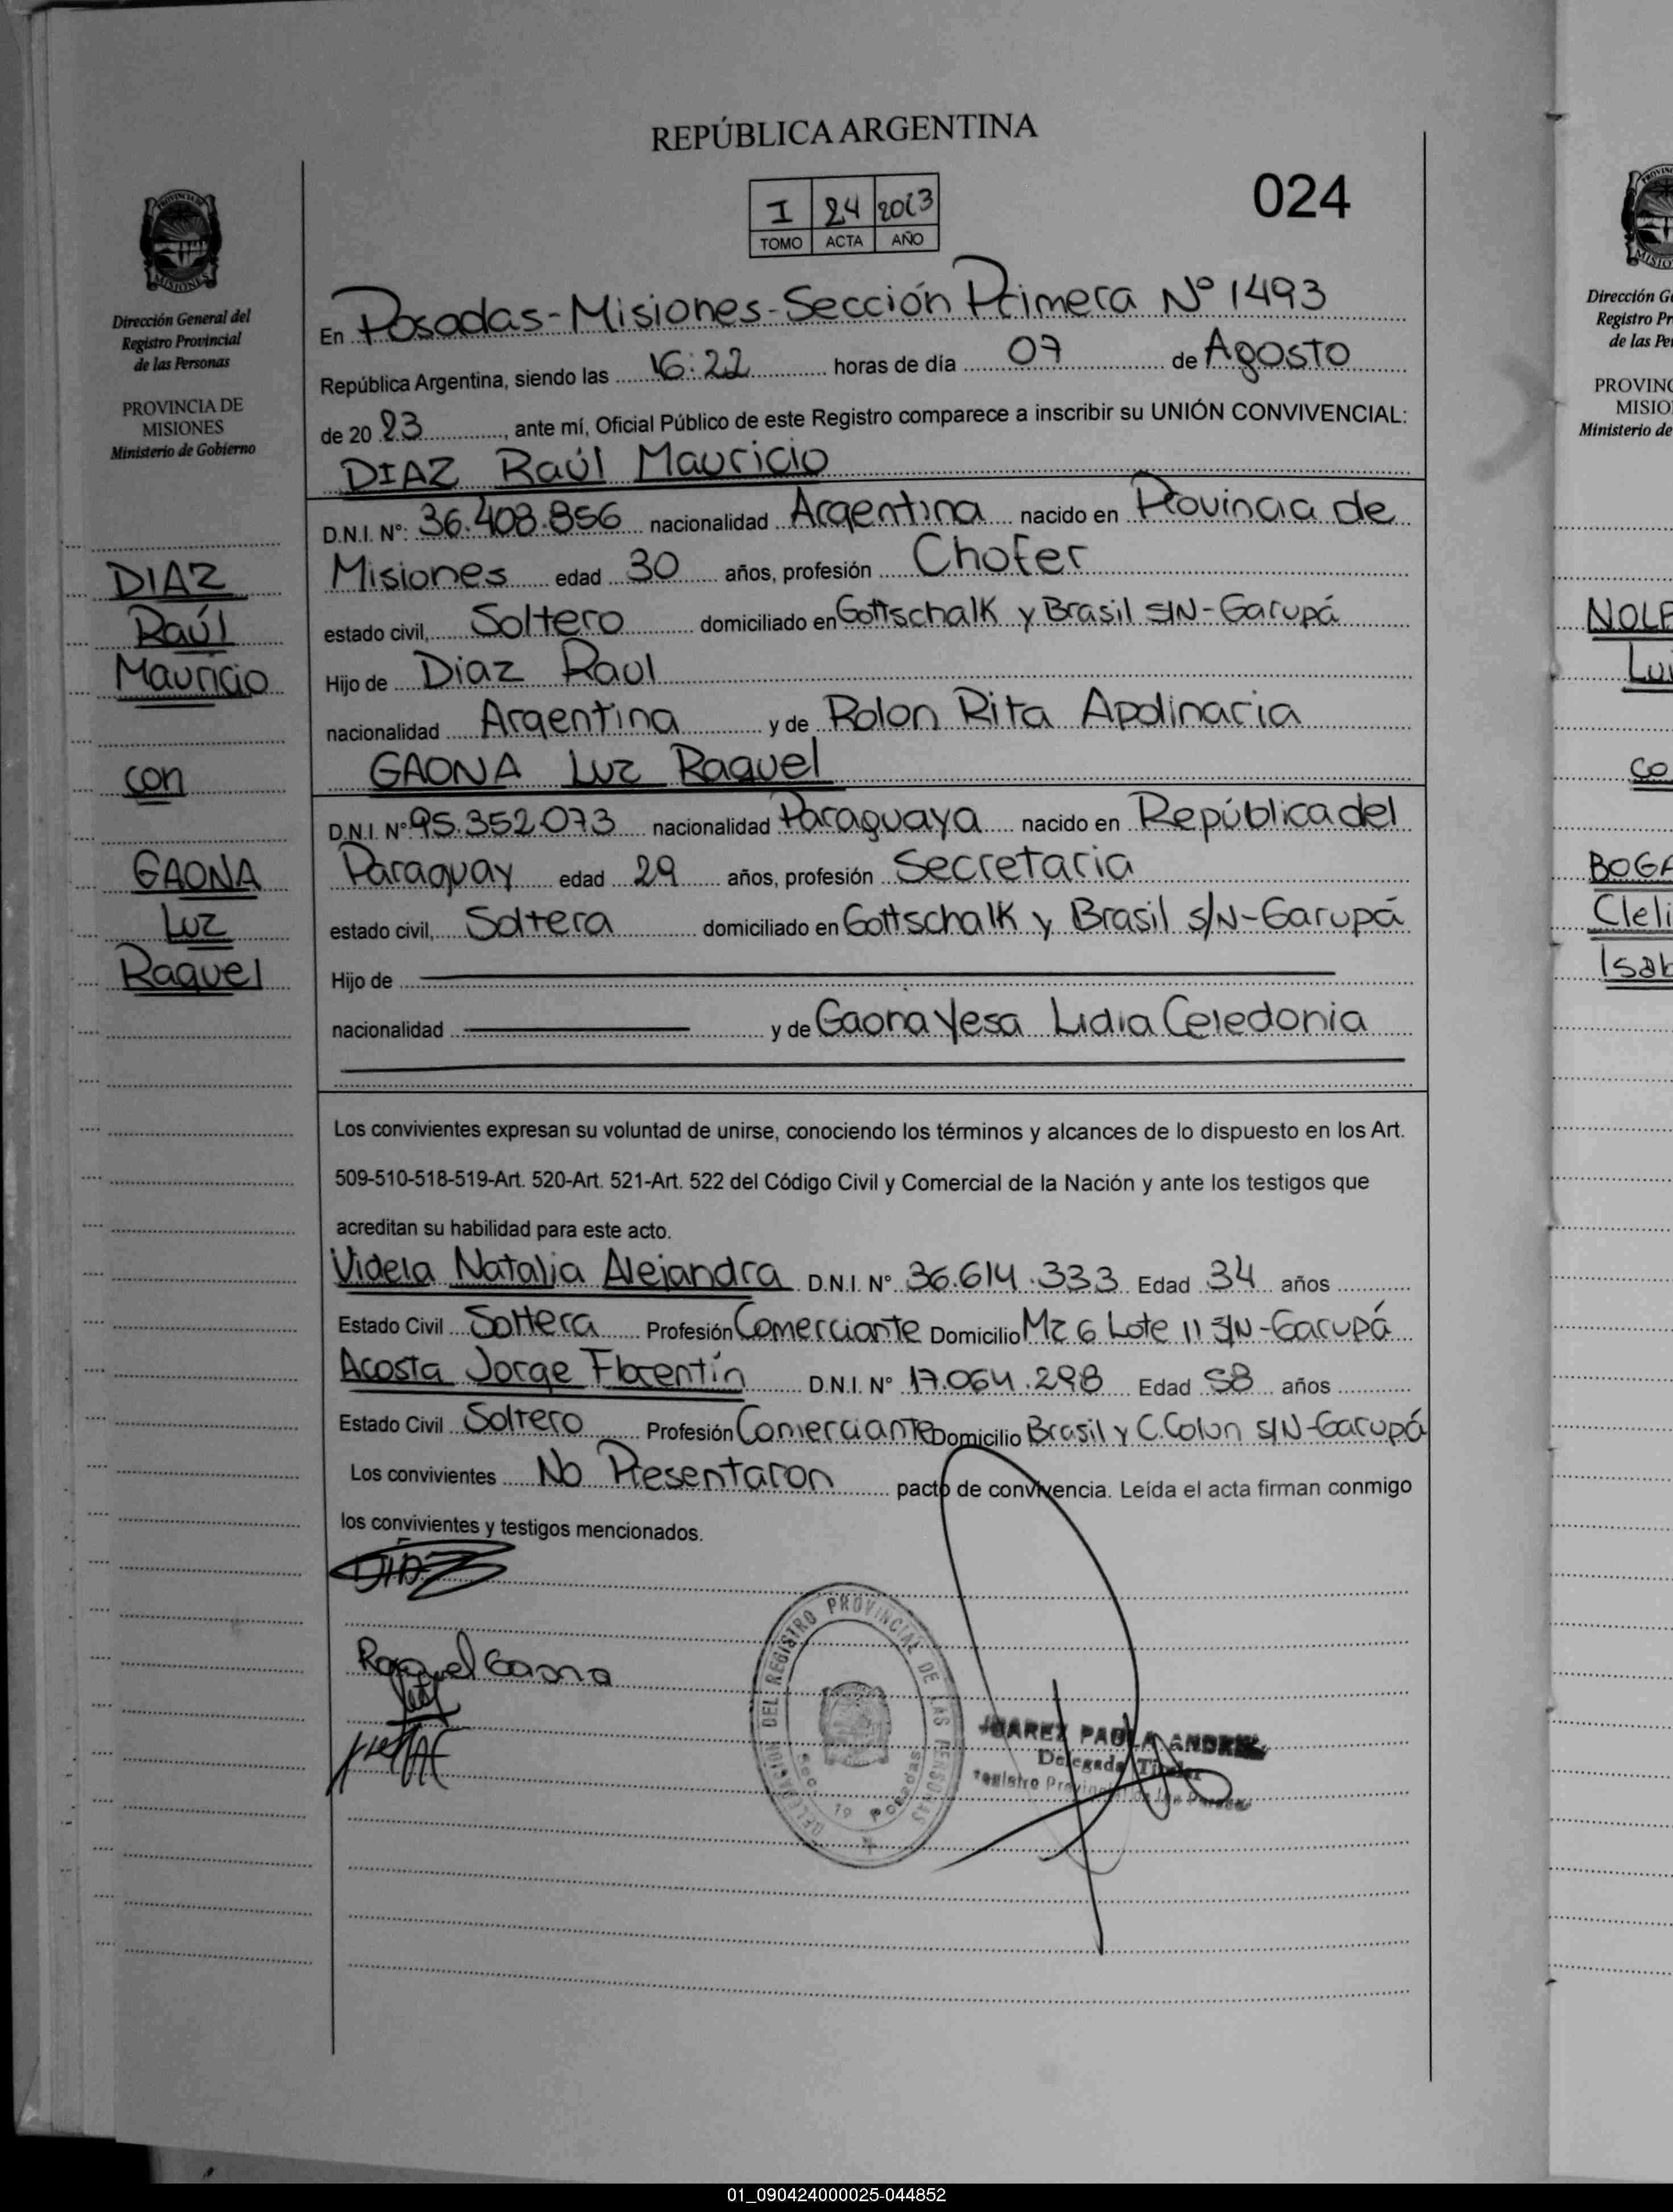 REPÚBLICA ARGENTINA
024
I 24 2023
TOMO ACTA AÑO
PROVINCIA DE
MISIONES
Dirección General del
Registro Provincial
de las Personas
PROVINCIA DE
MISIONES
Ministerio de Gobierno
En Posadas-Misiones-Sección Primera Nº 1493
República Argentina, siendo las 16:22 horas de día 07 de Agosto
de 20 23, ante mí, Oficial Público de este Registro comparece a inscribir su UNIÓN CONVIVENCIAL:
DIAZ Raúl Mauricio
D.N.I. Nº: 36.408.856 nacionalidad Argentina nacido en Provincia de
Misiones edad 30 años, profesión Chofer
estado civil, Soltero domiciliado en Gottschalk y Brasil S/N-Garupá
Hijo de Diaz Raul
nacionalidad Argentina y de Rolon Rita Apolinaria
GAONA Luz Raquel
D.N.I. Nº 95.352.073 nacionalidad Paraguaya nacido en República del
Paraguay edad 29 años, profesión Secretaria
estado civil, Soltera domiciliado en Gottschalk y Brasil s/N-Garupá
Hijo de
nacionalidad y de Gaona Yesa Lidia Celedonia
DIAZ
Raúl
Mauricio
con
GAONA
Luz
Raquel
Los convivientes expresan su voluntad de unirse, conociendo los términos y alcances de lo dispuesto en los Art.
509-510-518-519-Art. 520-Art. 521-Art. 522 del Código Civil y Comercial de la Nación y ante los testigos que
acreditan su habilidad para este acto.
Videla Natalia Alejandra D.N.I. Nº 36.614.333 Edad 34 años
Estado Civil Soltera Profesión Comerciante Domicilio Mz 6 Lote 11 S/N-Garupá
Acosta Jorge Florentín D.N.I. Nº 17.064.298 Edad 58 años
Estado Civil Soltero Profesión Comerciante Domicilio Brasil y C.Colon S/N-Garupá
Los convivientes No Presentaron pacto de convivencia. Leída el acta firman conmigo
los convivientes y testigos mencionados.
DIAZ
Raquel Gaona
DELEGACION DEL REGISTRO PROVINCIAL DE LAS PERSONAS
Secc. 1º Posadas
JUAREZ PAOLA
Delegada Titular
Registro Provincial de las Personas
Dirección Ge
Registro Pr
de las Pe
PROVINC
MISIO
Ministerio de
NOLE
Lui
co
BOGA
Cleli
Isab
01_090424000025-044852